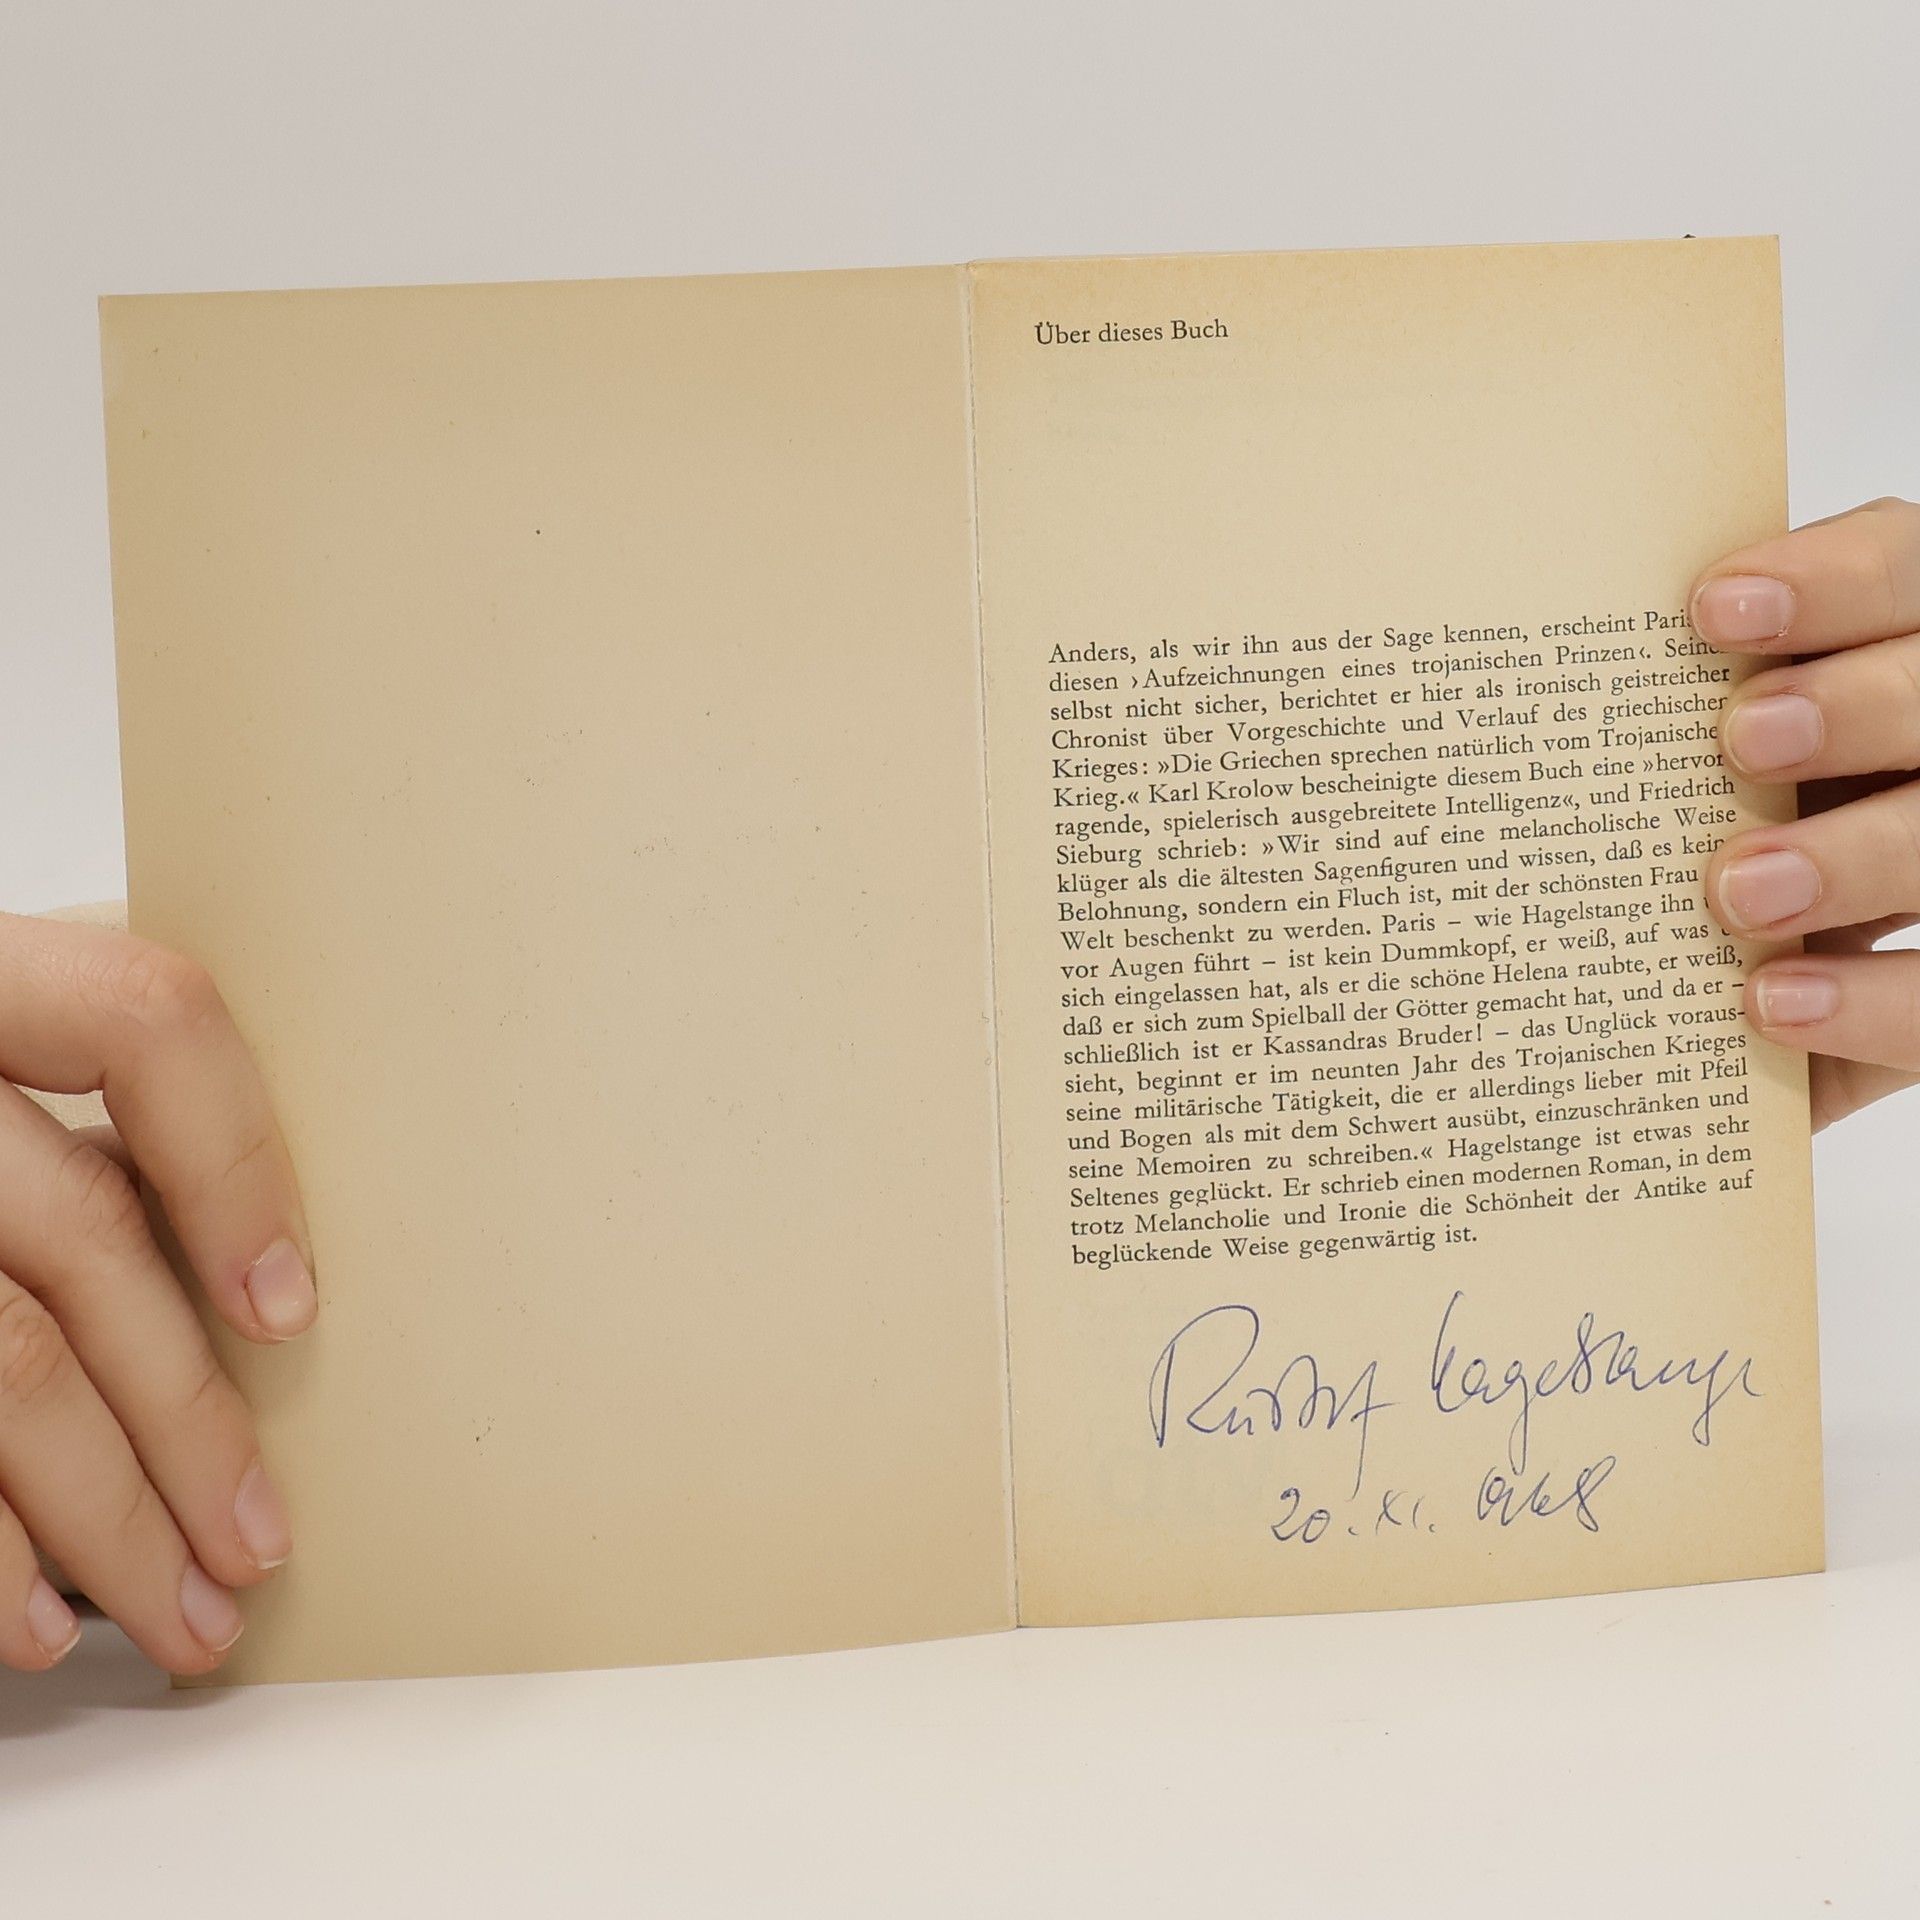 Über dieses Buch
Anders, als wir ihn aus der Sage kennen, erscheint Paris
diesen ›Aufzeichnungen eines trojanischen Prinzen‹. Seiner
selbst nicht sicher, berichtet er hier als ironisch geistreicher
Chronist über Vorgeschichte und Verlauf des griechischen
Krieges: »Die Griechen sprechen natürlich vom Trojanischen
Krieg.« Karl Krolow bescheinigte diesem Buch eine »hervor-
ragende, spielerisch ausgebreitete Intelligenz«, und Friedrich
Sieburg schrieb: »Wir sind auf eine melancholische Weise
klüger als die ältesten Sagenfiguren und wissen, daß es keine
Belohnung, sondern ein Fluch ist, mit der schönsten Frau
Welt beschenkt zu werden. Paris – wie Hagelstange ihn
vor Augen führt – ist kein Dummkopf, er weiß, auf was
sich eingelassen hat, als er die schöne Helena raubte, er weiß,
daß er sich zum Spielball der Götter gemacht hat, und da er –
schließlich ist er Kassandras Bruder! – das Unglück voraus-
sieht, beginnt er im neunten Jahr des Trojanischen Krieges
seine militärische Tätigkeit, die er allerdings lieber mit Pfeil
und Bogen als mit dem Schwert ausübt, einzuschränken und
seine Memoiren zu schreiben.« Hagelstange ist etwas sehr
Seltenes geglückt. Er schrieb einen modernen Roman, in dem
trotz Melancholie und Ironie die Schönheit der Antike auf
beglückende Weise gegenwärtig ist.
Rudolf Hagelstange
20. XI. 1968